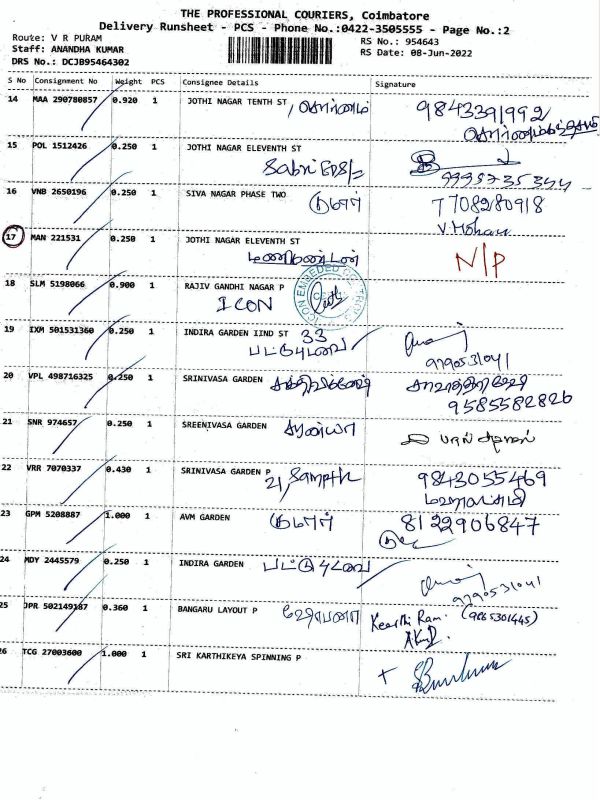 THE PROFESSIONAL COURIERS, Coimbatore
Delivery Runsheet - PCS - Phone No.:0422-3505555 - Page No.:2
Route: V R PURAM
RS No.: 954643
Staff: ANANDHA KUMAR
RS Date: 08-Jun-2022
DRS No.: DCJB95464302
S No Consignment No Weight PCS Consignee Details Signature
14 MAA 290780857 0.920 1 JOTHI NAGAR TENTH ST 9843391992
15 POL 1512426 0.250 1 JOTHI NAGAR ELEVENTH ST
Sabri
16 VNB 2650196 0.250 1 SIVA NAGAR PHASE TWO குமார் 7708280918
V. Mohan
17 MAN 221531 0.250 1 JOTHI NAGAR ELEVENTH ST
மணிகண்டன் N/P
18 SLM 5198066 0.900 1 RAJIV GANDHI NAGAR P
ICON
19 IXM 501531360 0.250 1 INDIRA GARDEN IIND ST 33
பட்டுபுடவை 9790531041
20 VPL 498716325 0.250 1 SRINIVASA GARDEN
9585582826
21 SNR 974657 0.250 1 SREENIVASA GARDEN சரண்யா
22 VRR 7070337 0.430 1 SRINIVASA GARDEN P 9843055469
21, Sampth மகாலட்சுமி
23 GPM 5208887 1.000 1 AVM GARDEN குமார் 8122906847
24 MDY 2445579 0.250 1 INDIRA GARDEN பட்டுபுடவை
9790531041
25 JPR 502149187 0.360 1 BANGARU LAYOUT P Keerthi Ram. (9865301445)
26 TCG 27003600 1.000 1 SRI KARTHIKEYA SPINNING P